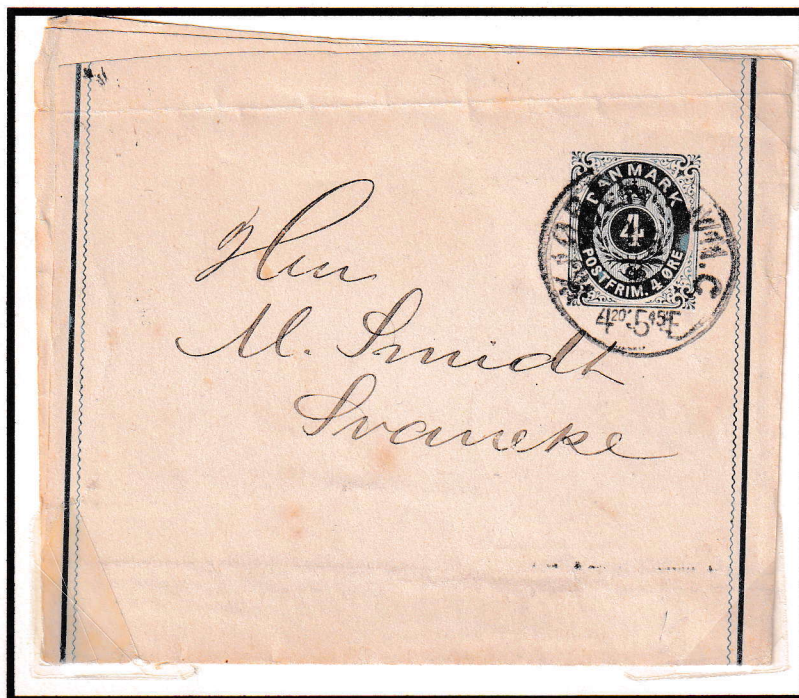 DANMARK
4
POSTFRIM. 4 ØRE
4²⁰-5⁴⁵E
Hrn
M. Smidt
Svaneke